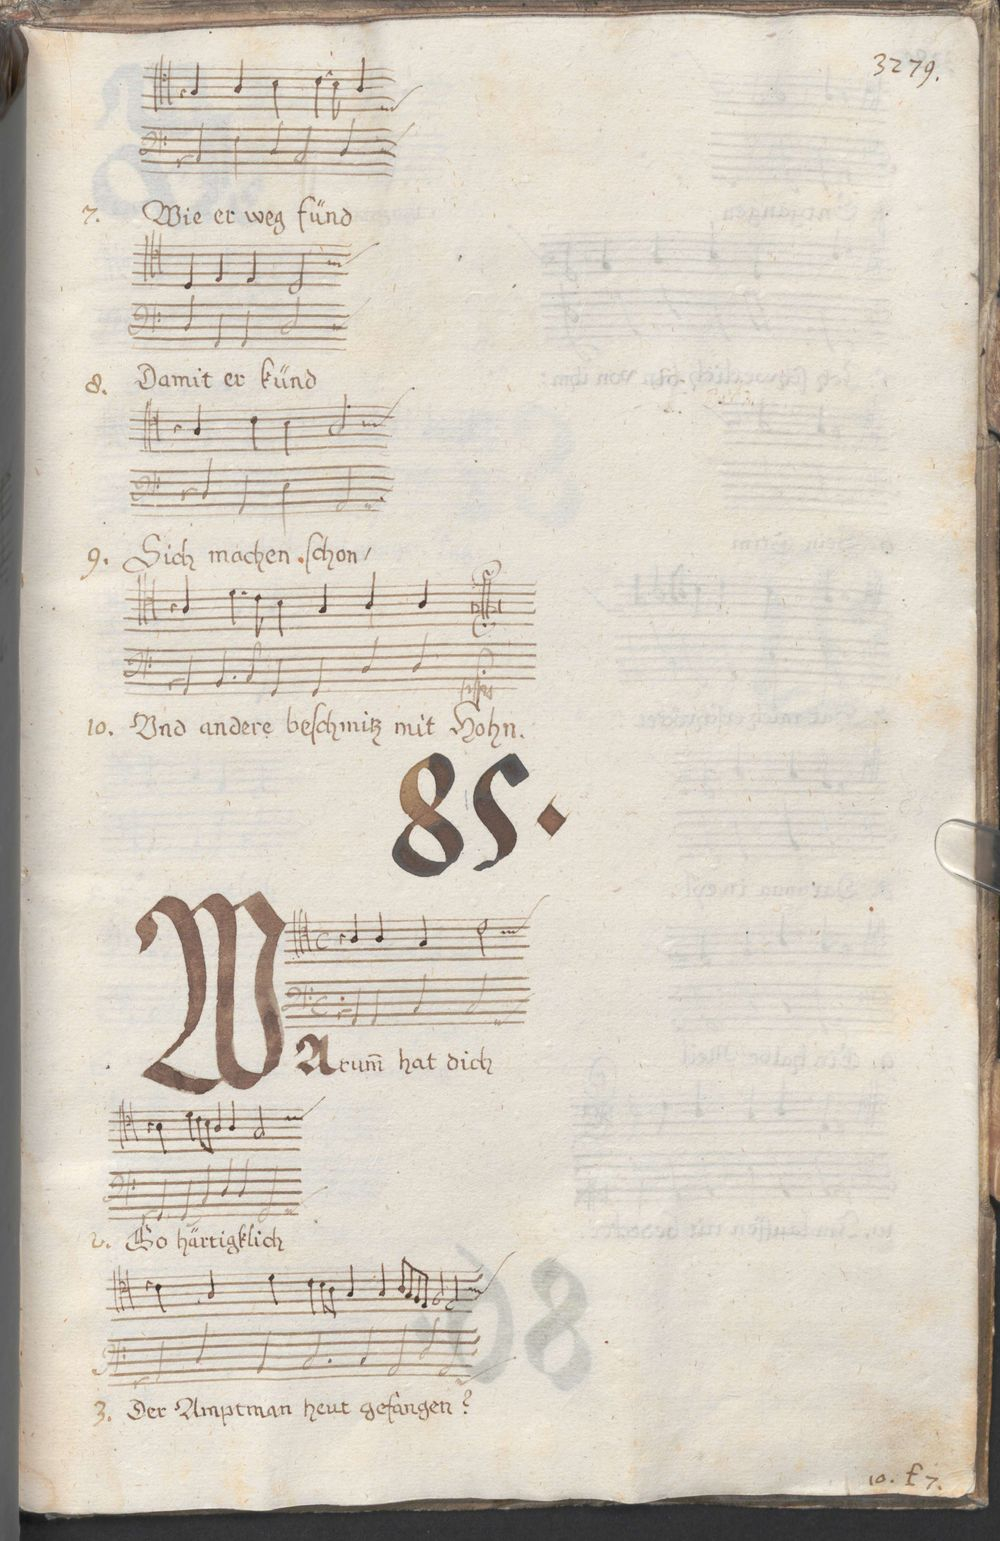 3279.
7. Wie er weg fünd
8. Damit er künd
9. Sich machen schon/
10. Vnd andere beschmitz mit Hohn.
85.
WArum̄ hat dich
2. So härtigklich
3. Der Amptman heut gefangen?
10. f 7.